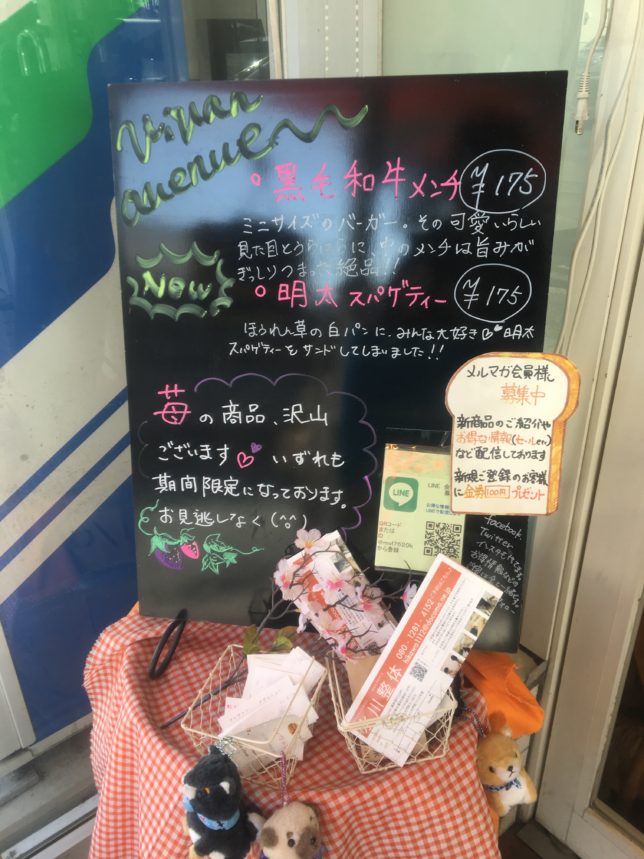 avenue
黒毛和牛メンチ ¥175
ミニサイズのバーガー。その可愛いらしい
見た目とうらはらに、中のメンチは旨みが
ぎっしりつまった絶品!!
New
明太スパゲティー ¥175
ほうれん草の白パンに、みんな大好き明太
スパゲティーをサンドしてしまいました!!
苺の商品、沢山
ございます いずれも
期間限定になっております。
お見逃しなく(^o^)
メルマガ会員様
募集中
新商品のご紹介や
お得な情報(セールetc)
など配信しております
新規ご登録のお客様
に金券100円プレゼント
LINE
QRコード
または
ID
から登録
facebook
Twitter
川整体
080-1281-4152